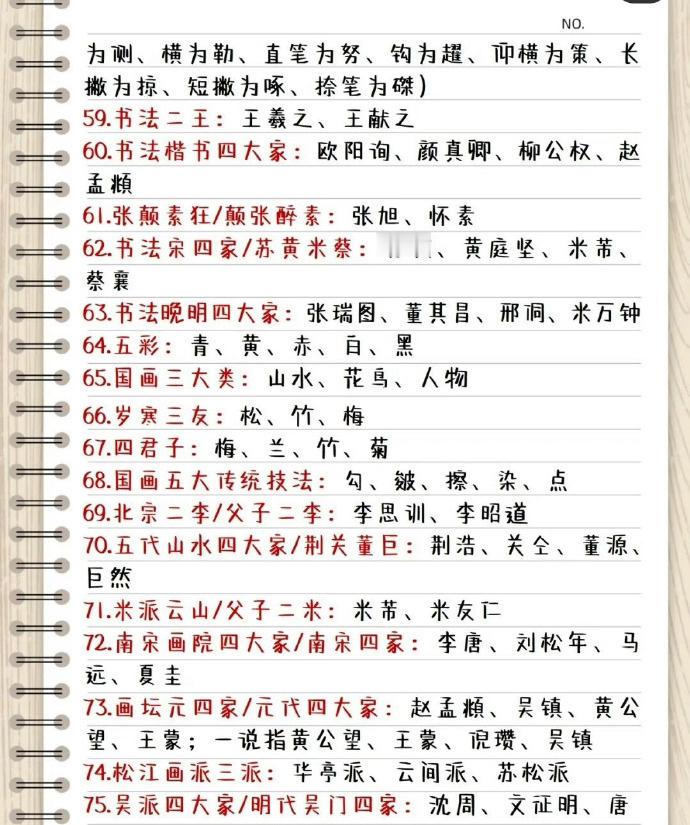 NO.
为侧、横为勒、直笔为努、钩为趯、仰横为策、长
撇为掠、短撇为啄、捺笔为磔)
59.书法二王：王羲之、王献之
60.书法楷书四大家：欧阳询、颜真卿、柳公权、赵
孟頫
61.张颠素狂/颠张醉素：张旭、怀素
62.书法宋四家/苏黄米蔡：、黄庭坚、米芾、
蔡襄
63.书法晚明四大家：张瑞图、董其昌、邢侗、米万钟
64.五彩：青、黄、赤、白、黑
65.国画三大类：山水、花鸟、人物
66.岁寒三友：松、竹、梅
67.四君子：梅、兰、竹、菊
68.国画五大传统技法：勾、皴、擦、染、点
69.北宗二李/父子二李：李思训、李昭道
70.五代山水四大家/荆关董巨：荆浩、关仝、董源、
巨然
71.米派云山/父子二米：米芾、米友仁
72.南宋画院四大家/南宋四家：李唐、刘松年、马
远、夏圭
73.画坛元四家/元代四大家：赵孟頫、吴镇、黄公
望、王蒙；一说指黄公望、王蒙、倪瓒、吴镇
74.松江画派三派：华亭派、云间派、苏松派
75.吴派四大家/明代吴门四家：沈周、文证明、唐